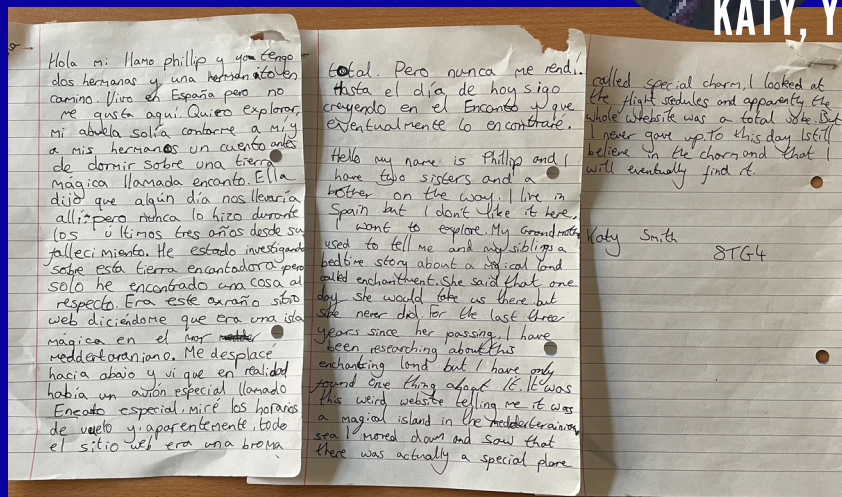 KATY, Y
Hola mi llamo phillip y yo tengo
dos hermanas y una hermanito en
camino. Vivo en España pero no
me gusta aqui. Quiero explorar,
mi abuela solía contarme a mí y
a mis hermanos un cuento antes
de dormir sobre una tierra
mágica llamada encanto. Ella
dijo que algun día nos llevaría
allí pero nunca lo hizo durante
los últimos tres años desde su
fallecimiento. He estado investigando
sobre esta tierra encantadora pero
solo he encontrado una cosa al
respecto. Era este extraño sitio
web diciéndome que era una isla
mágica en el mar
meddertoraniano. Me desplacé
hacia abajo y vi que en realidad
había un avión especial llamado
Encanto especial. miré los horarios
de vuelo y, aparentemente, todo
el sitio web era una broma
total. Pero nunca me rendí.
Hasta el día de hoy sigo
creyendo en el Encanto y que
eventualmente lo encontraré.
Hello my name is Phillip and I
have two sisters and a
bother on the way. I live in
Spain but I don't like it here,
I want to explore. My Grandmother
used to tell me and my siblings a
bedtime story about a magical land
called enchantment. She said that one
day she would take us there but
she never did. For the last three
years since her passing, I have
been researching about this
enchanting land but I have only
found one thing about it. It was
this weird website telling me it was
a magical island in the medderterainian
sea I moved down and saw that
there was actually a special plane
called special charm, I looked at
the flight sedules and apparently the
whole website was a total joke. But
I never gave up. To this day I still
believe in the charm and that I
will eventually find it.
Katy Smith
8TG4